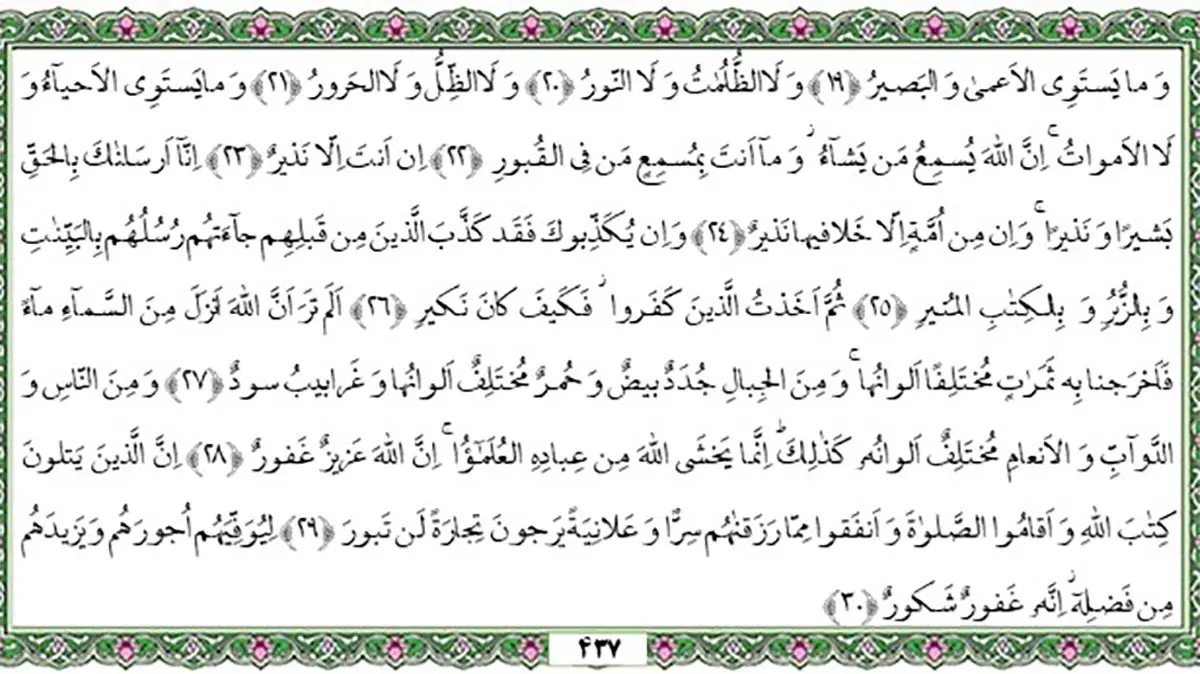 وَ ما يَستَوِى الاَعمىٰ وَ البَصيرُ ﴿١٩﴾ وَ لَا الظُّلُمٰتُ وَ لَا النّورُ ﴿٢٠﴾ وَ لَا الظِّلُّ وَ لَا الحَرورُ ﴿٢١﴾ وَ ما يَستَوِى الاَحيآءُ وَ
لَا الاَمواتُ ۚ اِنَّ اللهَ يُسمِعُ مَن يَشآءُ ۖ وَ مآ اَنتَ بِمُسمِعٍ مَن فِى القُبورِ ﴿٢٢﴾ اِن اَنتَ اِلّا نَذيرٌ ﴿٢٣﴾ اِنّآ اَرسَلنٰكَ بِالحَقِّ
بَشيرًا وَ نَذيرًا ۚ وَ اِن مِن اُمَّةٍ اِلّا خَلا فيها نَذيرٌ ﴿٢٤﴾ وَ اِن يُكَذِّبوكَ فَقَد كَذَّبَ الَّذينَ مِن قَبلِهِم جآءَتهُم رُسُلُهُم بِالبَيِّنٰتِ
وَ بِالزُّبُرِ وَ بِالكِتٰبِ المُنيرِ ﴿٢٥﴾ ثُمَّ اَخَذتُ الَّذينَ كَفَروا ۖ فَكَيفَ كانَ نَكيرِ ﴿٢٦﴾ اَلَم تَرَ اَنَّ اللهَ اَنزَلَ مِنَ السَّمآءِ مآءً
فَاَخرَجنا بِه ثَمَرٰتٍ مُختَلِفًا اَلوانُها ۚ وَ مِنَ الجِبالِ جُدَدٌ بيضٌ وَ حُمرٌ مُختَلِفٌ اَلوانُها وَ غَرابيبُ سودٌ ﴿٢٧﴾ وَ مِنَ النّاسِ وَ
الدَّوآبِّ وَ الاَنعامِ مُختَلِفٌ اَلوانُه كَذٰلِكَ ۗ اِنَّما يَخشَى اللهَ مِن عِبادِهِ العُلَمٰٓؤُا ۗ اِنَّ اللهَ عَزيزٌ غَفورٌ ﴿٢٨﴾ اِنَّ الَّذينَ يَتلونَ
كِتٰبَ اللهِ وَ اَقامُوا الصَّلوٰةَ وَ اَنفَقوا مِمّا رَزَقنٰهُم سِرًّا وَ عَلانِيَةً يَرجونَ تِجارَةً لَن تَبورَ ﴿٢٩﴾ لِيُوَفِّيَهُم اُجورَهُم وَ يَزيدَهُم
مِن فَضلِه ۚ اِنَّه غَفورٌ شَكورٌ ﴿٣٠﴾
۴۳۷